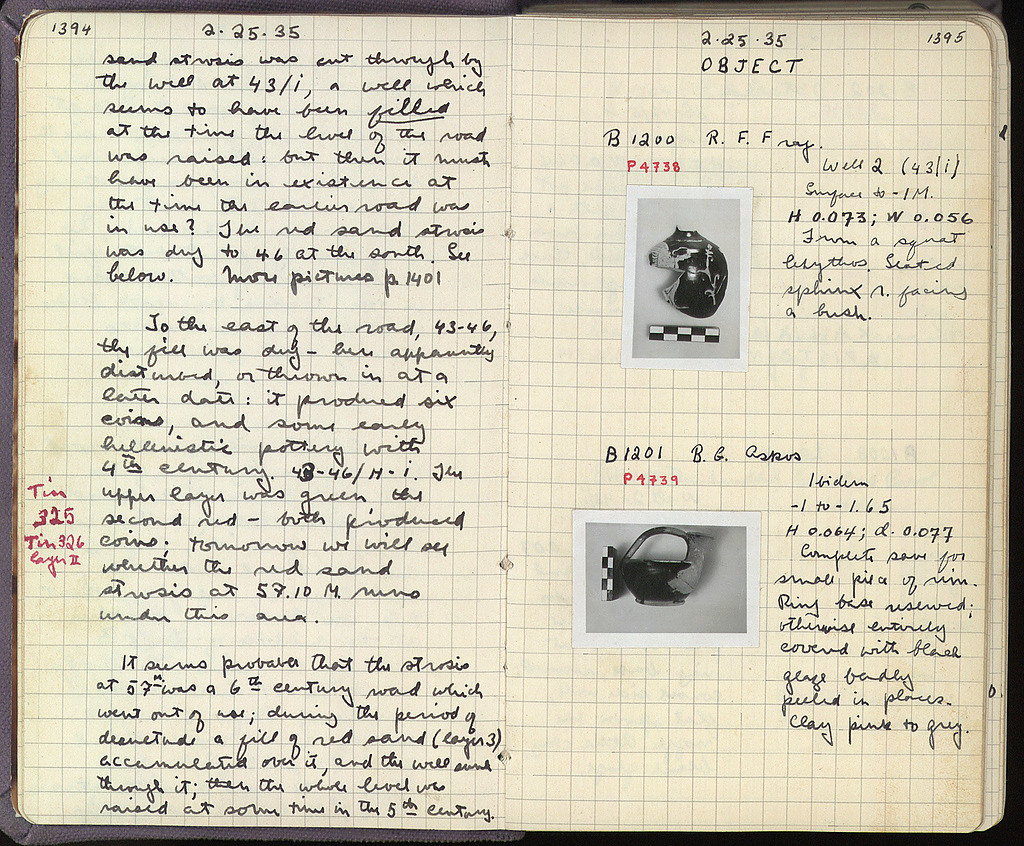 1394
2·25·35
sand strosis was cut through by
the well at 43/i, a well which
seems to have been filled
at the time the level of the road
was raised: but then it must
have been in existence at
the time the earlier road was
in use? The red sand strosis
was dug to 46 at the south. See
below. More pictures p. 1401
To the east of the road, 43-46,
the fill was dug – here apparently
disturbed, or thrown in at a
later date: it produced six
coins, and some early
hellenistic pottery with
4th century. 43-46/H-i. The
upper layer was green the
second red – both produced
coins; tomorrow we will see
whether the red sand
strosis at 57.10 M. runs
under this area.
Tin
325
Tin 326
layer II
It seems probable that the strosis
at 57M was a 6th century road which
went out of use; during the period of
desuetude a fill of red sand (layer 3)
accumulated over it, and the well sunk
through it; then the whole level was
raised at some time in the 5th century.
2·25·35
1395
OBJECT
B 1200 R. F. Frag.
P4738
Well 2 (43/i)
Surface to -1 M.
H 0.073; W 0.056
From a squat
lekythos. Seated
sphinx r. facing
a bush.
B 1201 B. G. Askos
P4739
Ibidem
-1 to -1.65
H 0.064; d. 0.077
Complete save for
small piece of rim.
Ring base reserved;
otherwise entirely
covered with black
glaze badly
peeled in places.
Clay pink to grey.